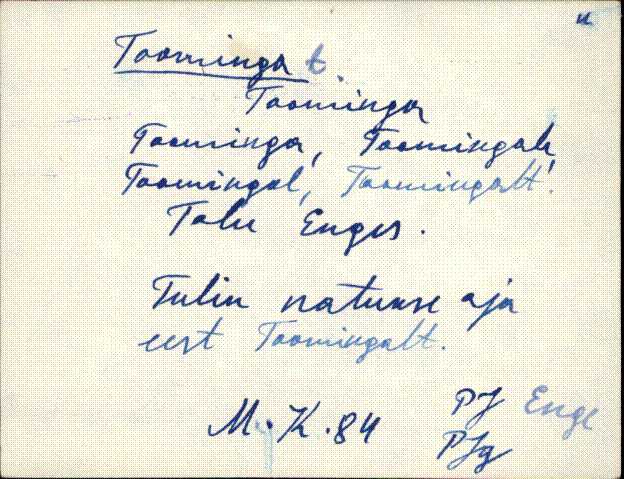 u
Toominga t.
Toominga
Toominga, Toomingale,
Toomingal, Toomingalt.
Talu Enges.
Tulin natukse aja
eest Toomingalt.
M. K. 84
PJ Enge
PJg